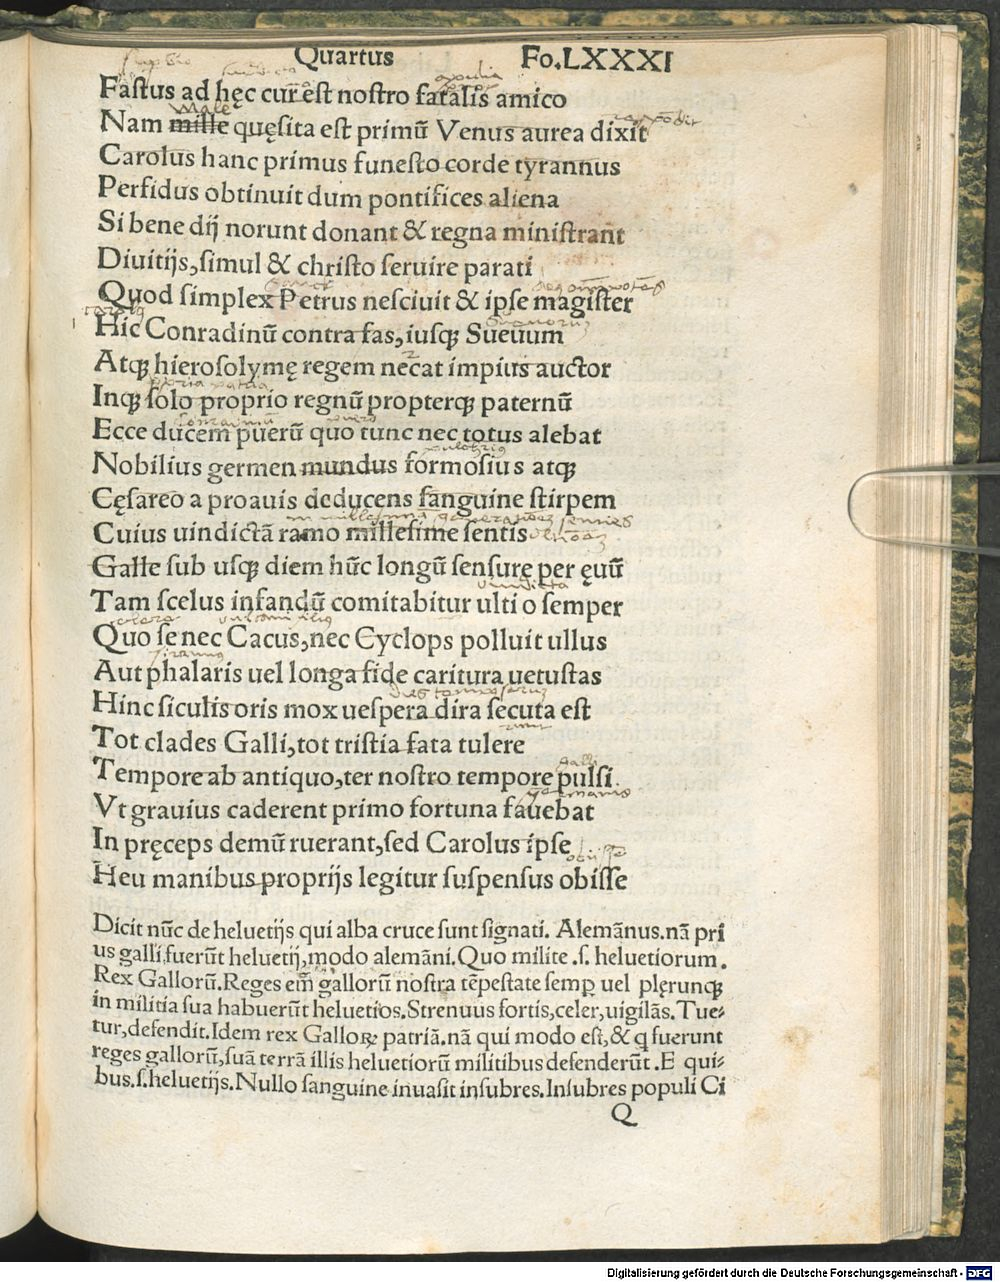 Quartus Fo.LXXXI
Fastus ad hęc cur est nostro fatalis amico
Nam mille quęsita est primũ Venus aurea dixit
male
Carolus hanc primus funesto corde tyrannus
Perfidus obtinuit dum pontifices aliena
Si bene dij norunt donant & regna ministrant
Diuitijs, simul & christo seruire parati
Quod simplex Petrus nesciuit & ipse magister
Hic Conradinũ contra fas, iusqꝫ Sueuum
Atqꝫ hierosolymę regem necat impius auctor
Inqꝫ solo proprio regnũ propterqꝫ paternũ
Ecce ducem puerũ quo tunc nec totus alebat
Nobilius germen mundus formosius atqꝫ
Cęsareo a proauis deducens sanguine stirpem
Cuius uindictã ramo millesime sentis
Galle sub usqꝫ diem hũc longũ sensurę per ęuũ
uindicta
Tam scelus infandũ comitabitur ulti o semper
Quo se nec Cacus, nec Cyclops polluit ullus
Aut phalaris uel longa fide caritura uetustas
Hinc siculis oris mox uespera dira secuta est
Tot clades Galli, tot tristia fata tulere
galli
Tempore ab antiquo, ter nostro tempore pulsi
germanis
Vt grauius caderent primo fortuna fauebat
In pręceps demũ ruerant, sed Carolus ipse
Heu manibus proprijs legitur suspensus obisse
Dicit nũc de heluetijs qui alba cruce sunt signati. Alemãnus. nã pri
us galli fuerũt heluetij, modo alemãni. Quo milite .s. heluetiorum.
Rex Gallorũ. Reges em̃ gallorũ nostra tẽpestate semꝑ uel plęrunqꝫ
in militia sua habuerũt heluetios. Strenuus fortis, celer, uigilãs. Tue⸗
tur, defendit. Idem rex Galloꝝ patriã. nã qui modo est, & q fuerunt
reges gallorũ, suã terrã illis heluetiorũ militibus defenderũt. E qui⸗
bus .s. heluetijs. Nullo sanguine inuasit insubres. Insubres populi Ci
Q
Digitalisierung gefördert durch die Deutsche Forschungsgemeinschaft - DFG